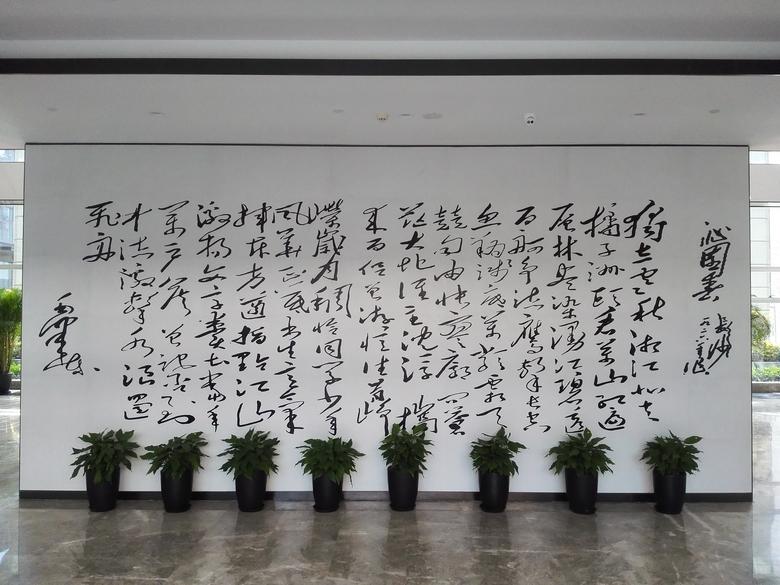 沁園春
長沙
獨立寒秋湘江北去
橘子洲頭看萬山紅遍
層林盡染漫江碧透
百舸爭流鷹擊長空
魚翔淺底萬類霜天
競自由悵寥廓問蒼
茫大地誰主沈浮攜
來百侶曾遊憶往昔崢
嶸歲月稠恰同學少年
風華正茂書生意氣
揮斥方遒指點江山
激揚文字糞土當年
萬戶侯曾記否到
中流擊水浪遏
飛舟
毛澤東